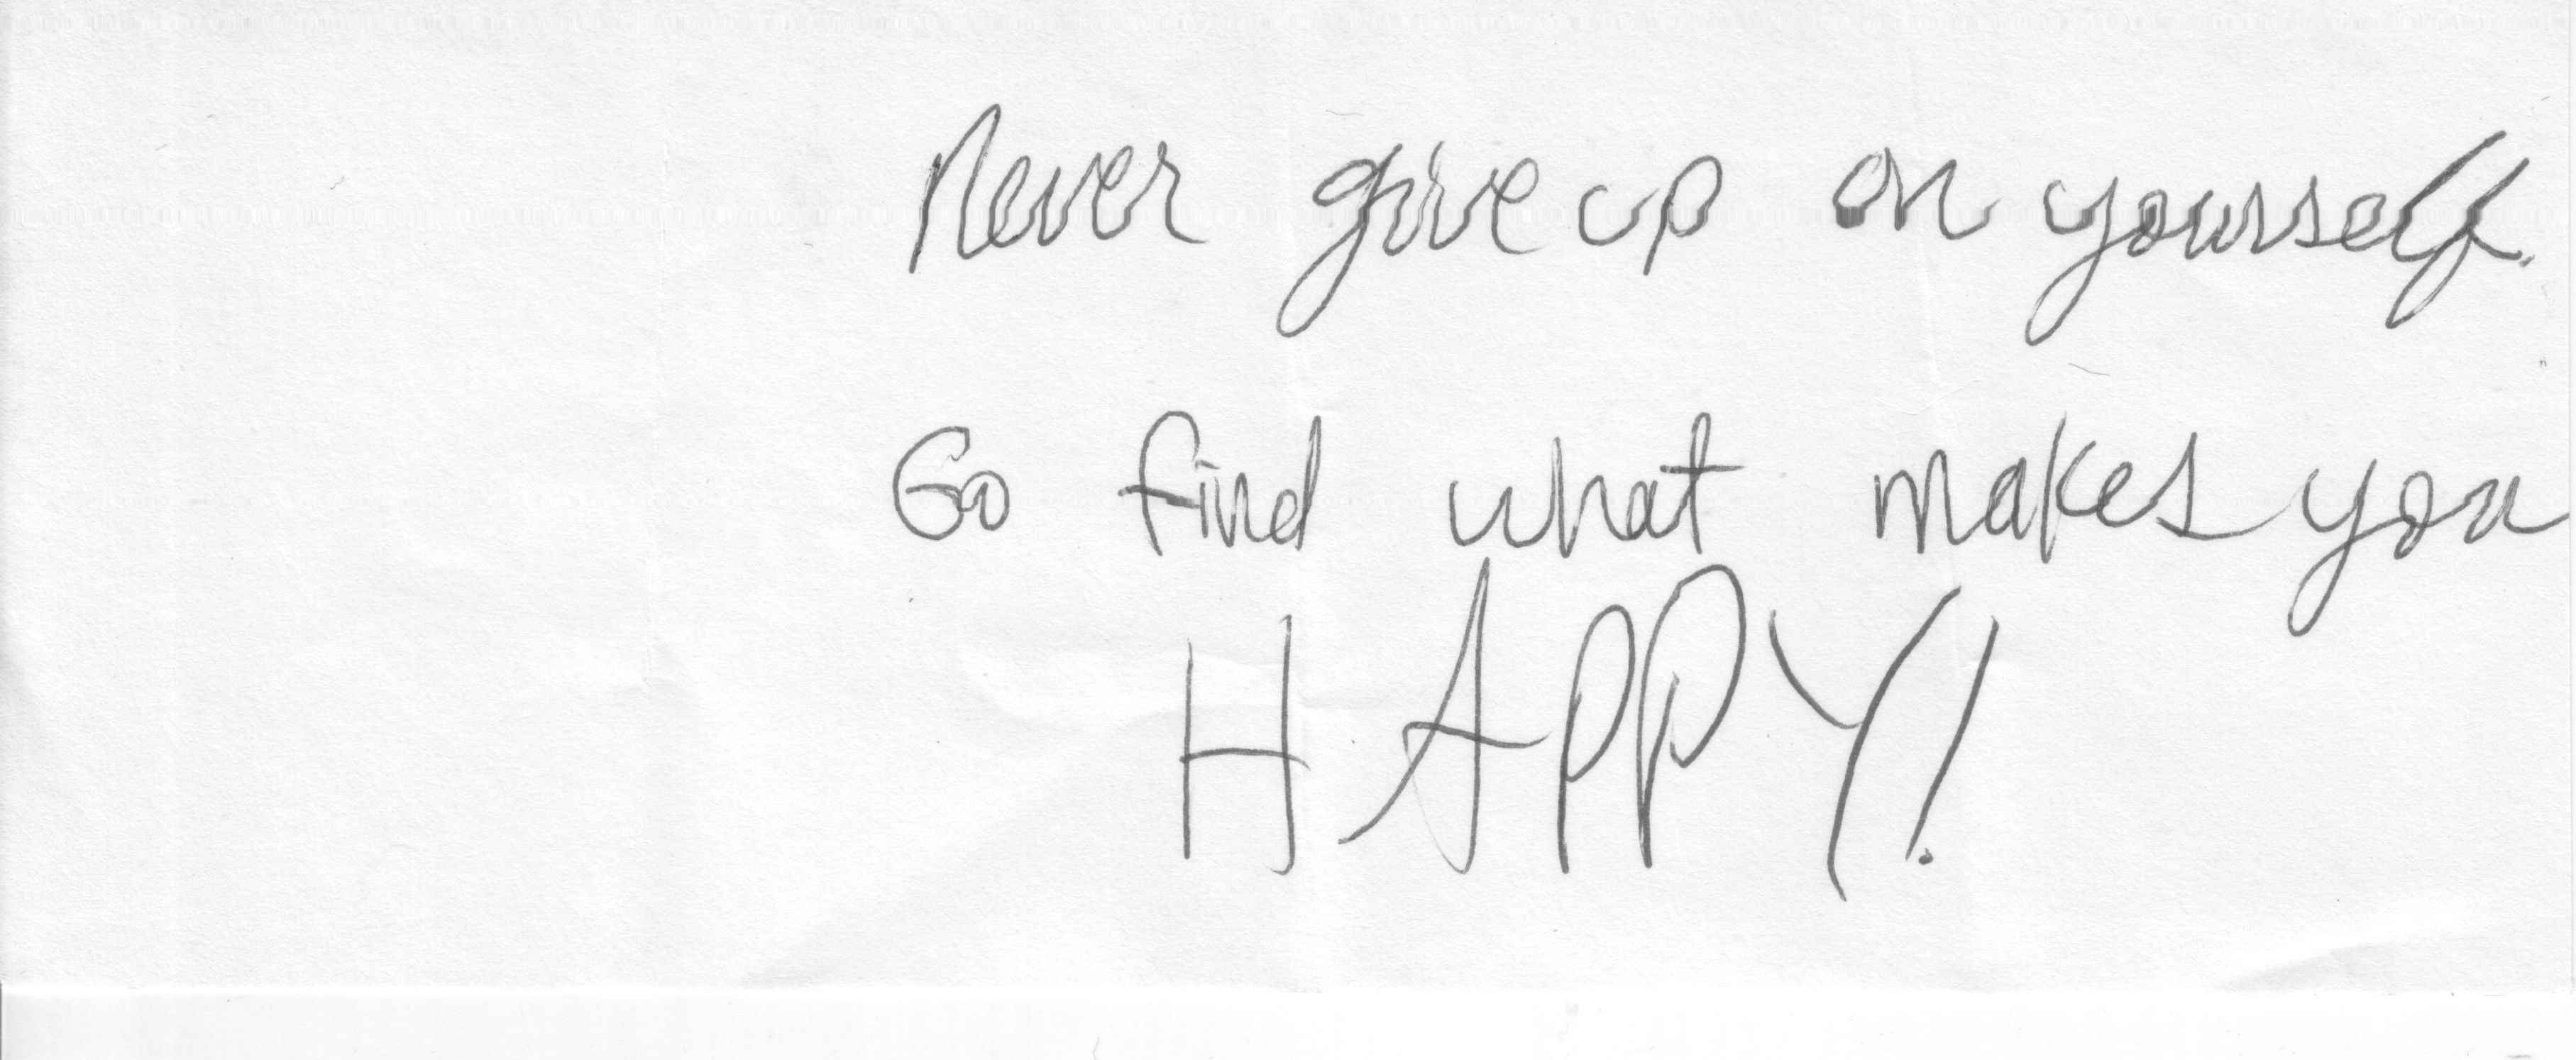 Never give up on yourself.
Go find what makes you
HAPPY!